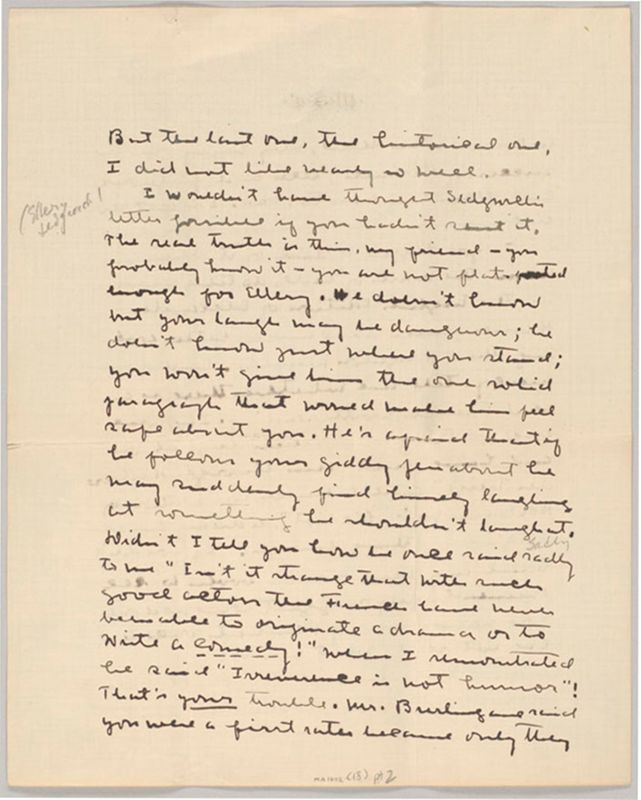 But the last one, the historical one,
I did not like nearly so well.
I wouldn't have thought Sedgwick's
(Ellery Sedgwick!
letter possible if you hadn't sent it.
The real truth is this, my friend – you
probably know it – you are not flat-footed
enough for Ellery. He doesn't know
but your laugh may be dangerous; he
doesn't know just where you stand;
you won't give him the one solid
paragraph that would make him feel
safe about you. He's afraid that if
he follows your giddy pen about he
may suddenly find himself laughing
at something he shouldn't laugh at.
Didn't I tell you how he once said sadly
sadly
to me "Isn't it strange that with such
good actors the French have never
been able to originate a drama or to
write a comedy!" When I remonstrated
he said "Irreverence is not humor"!
That's your trouble. Mr. Burlingame said
you were a first rater because only they
MA 1602 (13) pt 2